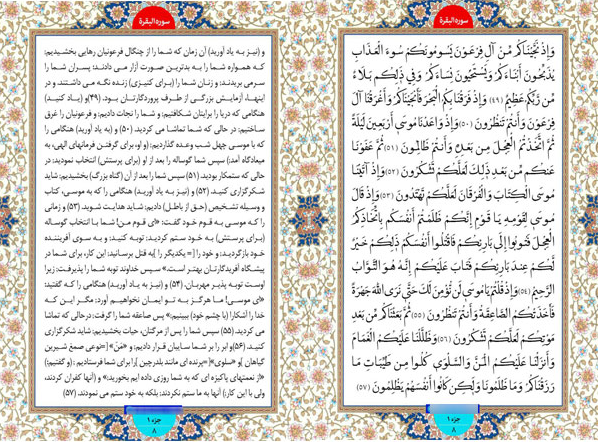 سورة البقرة
وَإِذْ نَجَّيْنَاكُم مِّنْ آلِ فِرْعَوْنَ يَسُومُونَكُمْ سُوءَ الْعَذَابِ
يُذَبِّحُونَ أَبْنَاءَكُمْ وَيَسْتَحْيُونَ نِسَاءَكُمْ وَفِي ذَلِكُم بَلَاءٌ
مِّن رَّبِّكُمْ عَظِيمٌ (۴۹) وَإِذْ فَرَقْنَا بِكُمُ الْبَحْرَ فَأَنجَيْنَاكُمْ وَأَغْرَقْنَا آلَ
فِرْعَوْنَ وَأَنتُمْ تَنظُرُونَ (۵۰) وَإِذْ وَاعَدْنَا مُوسَى أَرْبَعِينَ لَيْلَةً
ثُمَّ اتَّخَذْتُمُ الْعِجْلَ مِن بَعْدِهِ وَأَنتُمْ ظَالِمُونَ (۵۱) ثُمَّ عَفَوْنَا
عَنكُم مِّن بَعْدِ ذَلِكَ لَعَلَّكُمْ تَشْكُرُونَ (۵۲) وَإِذْ آتَيْنَا
مُوسَى الْكِتَابَ وَالْفُرْقَانَ لَعَلَّكُمْ تَهْتَدُونَ (۵۳) وَإِذْ قَالَ
مُوسَى لِقَوْمِهِ يَا قَوْمِ إِنَّكُمْ ظَلَمْتُمْ أَنفُسَكُم بِاتِّخَاذِكُمُ
الْعِجْلَ فَتُوبُوا إِلَى بَارِئِكُمْ فَاقْتُلُوا أَنفُسَكُمْ ذَلِكُمْ خَيْرٌ
لَّكُمْ عِندَ بَارِئِكُمْ فَتَابَ عَلَيْكُمْ إِنَّهُ هُوَ التَّوَّابُ
الرَّحِيمُ (۵۴) وَإِذْ قُلْتُمْ يَا مُوسَى لَن نُّؤْمِنَ لَكَ حَتَّى نَرَى اللَّهَ جَهْرَةً
فَأَخَذَتْكُمُ الصَّاعِقَةُ وَأَنتُمْ تَنظُرُونَ (۵۵) ثُمَّ بَعَثْنَاكُم مِّن بَعْدِ
مَوْتِكُمْ لَعَلَّكُمْ تَشْكُرُونَ (۵۶) وَظَلَّلْنَا عَلَيْكُمُ الْغَمَامَ
وَأَنزَلْنَا عَلَيْكُمُ الْمَنَّ وَالسَّلْوَى كُلُوا مِن طَيِّبَاتِ مَا
رَزَقْنَاكُمْ وَمَا ظَلَمُونَا وَلَكِن كَانُوا أَنفُسَهُمْ يَظْلِمُونَ (۵۷)
جزء ۱
۸
سورة البقرة
و (نیز به یاد آورید) آن زمان که شما را از چنگال فرعونیان رهایی بخشیدیم؛
که همواره شما را به بدترین صورت آزار می دادند: پسران شما را
سر می بریدند؛ و زنان شما را (برای کنیزی) زنده نگه می داشتند. و در
اینها، آزمایش بزرگی از طرف پروردگارتان بود. (۴۹) و (به یاد کنید)
هنگامی که دریا را برایتان شکافتیم؛ و شما را نجات دادیم؛ و فرعونیان را غرق
ساختیم؛ در حالی که شما تماشا می کردید. (۵۰) و (به یاد آورید) هنگامی را
که با موسی چهل شب وعده گذاردیم؛ (و او، برای گرفتن فرمانهای الهی، به
میعادگاه آمد؛) سپس شما گوساله را بعد از او (برای پرستش) انتخاب نمودید؛ در
حالی که ستمکار بودید. (۵۱) سپس شما را بعد از آن (گناه بزرگ) بخشیدیم؛ شاید
شکرگزاری کنید. (۵۲) و (نیز به یاد آورید) هنگامی را که به موسی، کتاب
و وسیله تشخیص (حق از باطل) دادیم؛ شاید هدایت شوید. (۵۳) و زمانی
را که موسی به قوم خود گفت: «ای قوم من! شما با انتخاب گوساله
(برای پرستش) به خود ستم کردید؛ توبه کنید؛ و به سوی آفریننده
خود بازگردید؛ و خود را [= یکدیگر را] به قتل برسانید؛ این کار، برای شما در
پیشگاه آفریدگارتان بهتر است.» سپس خداوند توبه شما را پذیرفت؛ زیرا
اوست توبه پذیر مهربان. (۵۴) و (نیز به یاد آورید) هنگامی را که گفتید:
«ای موسی! ما هرگز به تو ایمان نخواهیم آورد؛ مگر این که
خدا را آشکارا (با چشم خود) ببینیم!» پس صاعقه شما را گرفت؛ در حالی که تماشا
می کردید. (۵۵) سپس شما را پس از مرگتان، حیات بخشیدیم؛ شاید شکرگزاری
کنید. (۵۶) و ابر را بر شما سایبان قرار دادیم؛ و «مَنّ» [=نوعی صمغ شیرین
گیاهان] و «سلوی» [=پرنده ای مانند بلدرچین] را برای شما فرستادیم؛ (و گفتیم:)
«از نعمتهای پاکیزه ای که به شما روزی داده ایم بخورید.» و (آنها کفران کردند،
ولی با این کار،) آنها به ما ستم نکردند؛ بلکه به خود ستم می نمودند. (۵۷)
جزء ۱
۸